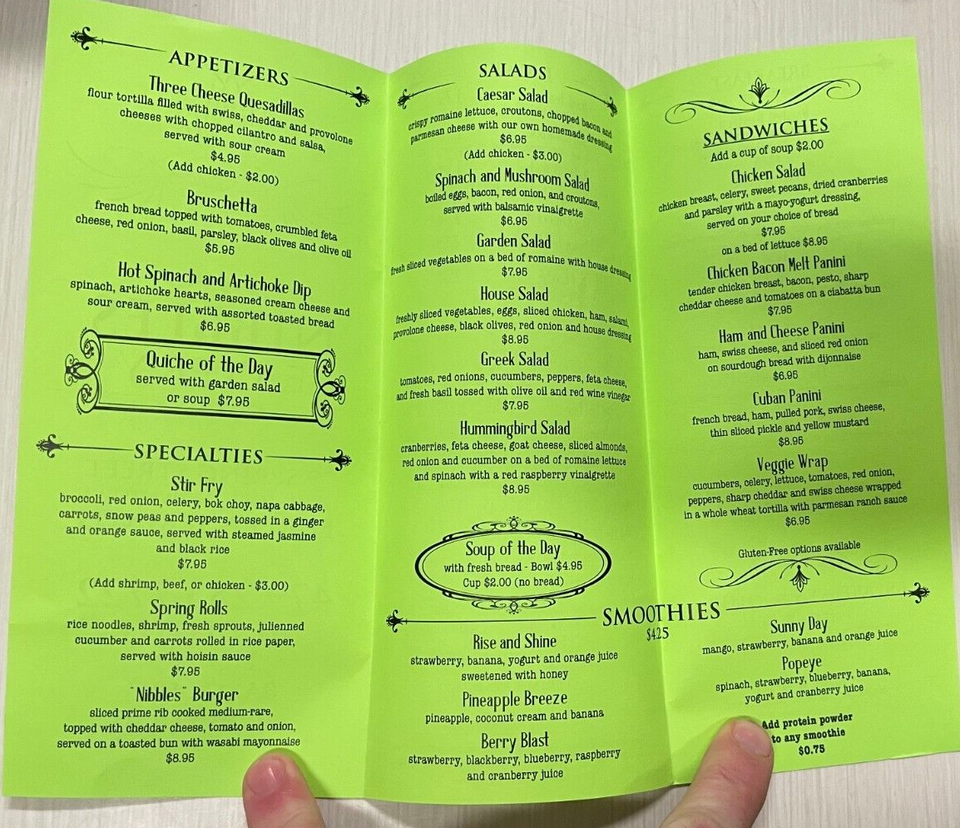 APPETIZERS
Three Cheese Quesadillas
flour tortilla filled with swiss, cheddar and provolone
cheeses with chopped cilantro and salsa,
served with sour cream
$4.95
(Add chicken - $2.00)
Bruschetta
french bread topped with tomatoes, crumbled feta
cheese, red onion, basil, parsley, black olives and olive oil
$5.95
Hot Spinach and Artichoke Dip
spinach, artichoke hearts, seasoned cream cheese and
sour cream, served with assorted toasted bread
$6.95
Quiche of the Day
served with garden salad
or soup $7.95
SPECIALTIES
Stir Fry
broccoli, red onion, celery, bok choy, napa cabbage,
carrots, snow peas and peppers, tossed in a ginger
and orange sauce, served with steamed jasmine
and black rice
$7.95
(Add shrimp, beef, or chicken - $3.00)
Spring Rolls
rice noodles, shrimp, fresh sprouts, julienned
cucumber and carrots rolled in rice paper,
served with hoisin sauce
$7.95
"Nibbles" Burger
sliced prime rib cooked medium-rare,
topped with cheddar cheese, tomato and onion,
served on a toasted bun with wasabi mayonnaise
$8.95
SALADS
Caesar Salad
crispy romaine lettuce, croutons, chopped bacon and
parmesan cheese with our own homemade dressing
$6.95
(Add chicken - $3.00)
Spinach and Mushroom Salad
boiled eggs, bacon, red onion, and croutons,
served with balsamic vinaigrette
$6.95
Garden Salad
fresh sliced vegetables on a bed of romaine with house dressing
$7.95
House Salad
freshly sliced vegetables, eggs, sliced chicken, ham, salami,
provolone cheese, black olives, red onion and house dressing
$8.95
Greek Salad
tomatoes, red onions, cucumbers, peppers, feta cheese,
and fresh basil tossed with olive oil and red wine vinegar
$7.95
Hummingbird Salad
cranberries, feta cheese, goat cheese, sliced almonds,
red onion and cucumber on a bed of romaine lettuce
and spinach with a red raspberry vinaigrette
$8.95
Soup of the Day
with fresh bread - Bowl $4.95
Cup $2.00 (no bread)
SANDWICHES
Add a cup of soup $2.00
Chicken Salad
chicken breast, celery, sweet pecans, dried cranberries
and parsley with a mayo-yogurt dressing,
served on your choice of bread
$7.95
on a bed of lettuce $8.95
Chicken Bacon Melt Panini
tender chicken breast, bacon, pesto, sharp
cheddar cheese and tomatoes on a ciabatta bun
$7.95
Ham and Cheese Panini
ham, swiss cheese, and sliced red onion
on sourdough bread with dijonnaise
$6.95
Cuban Panini
french bread, ham, pulled pork, swiss cheese,
thin sliced pickle and yellow mustard
$8.95
Veggie Wrap
cucumbers, celery, lettuce, tomatoes, red onion,
peppers, sharp cheddar and swiss cheese wrapped
in a whole wheat tortilla with parmesan ranch sauce
$6.95
Gluten-Free options available
SMOOTHIES
$4.25
Rise and Shine
strawberry, banana, yogurt and orange juice
sweetened with honey
Pineapple Breeze
pineapple, coconut cream and banana
Berry Blast
strawberry, blackberry, blueberry, raspberry
and cranberry juice
Sunny Day
mango, strawberry, banana and orange juice
Popeye
spinach, strawberry, blueberry, banana,
yogurt and cranberry juice
Add protein powder
to any smoothie
$0.75